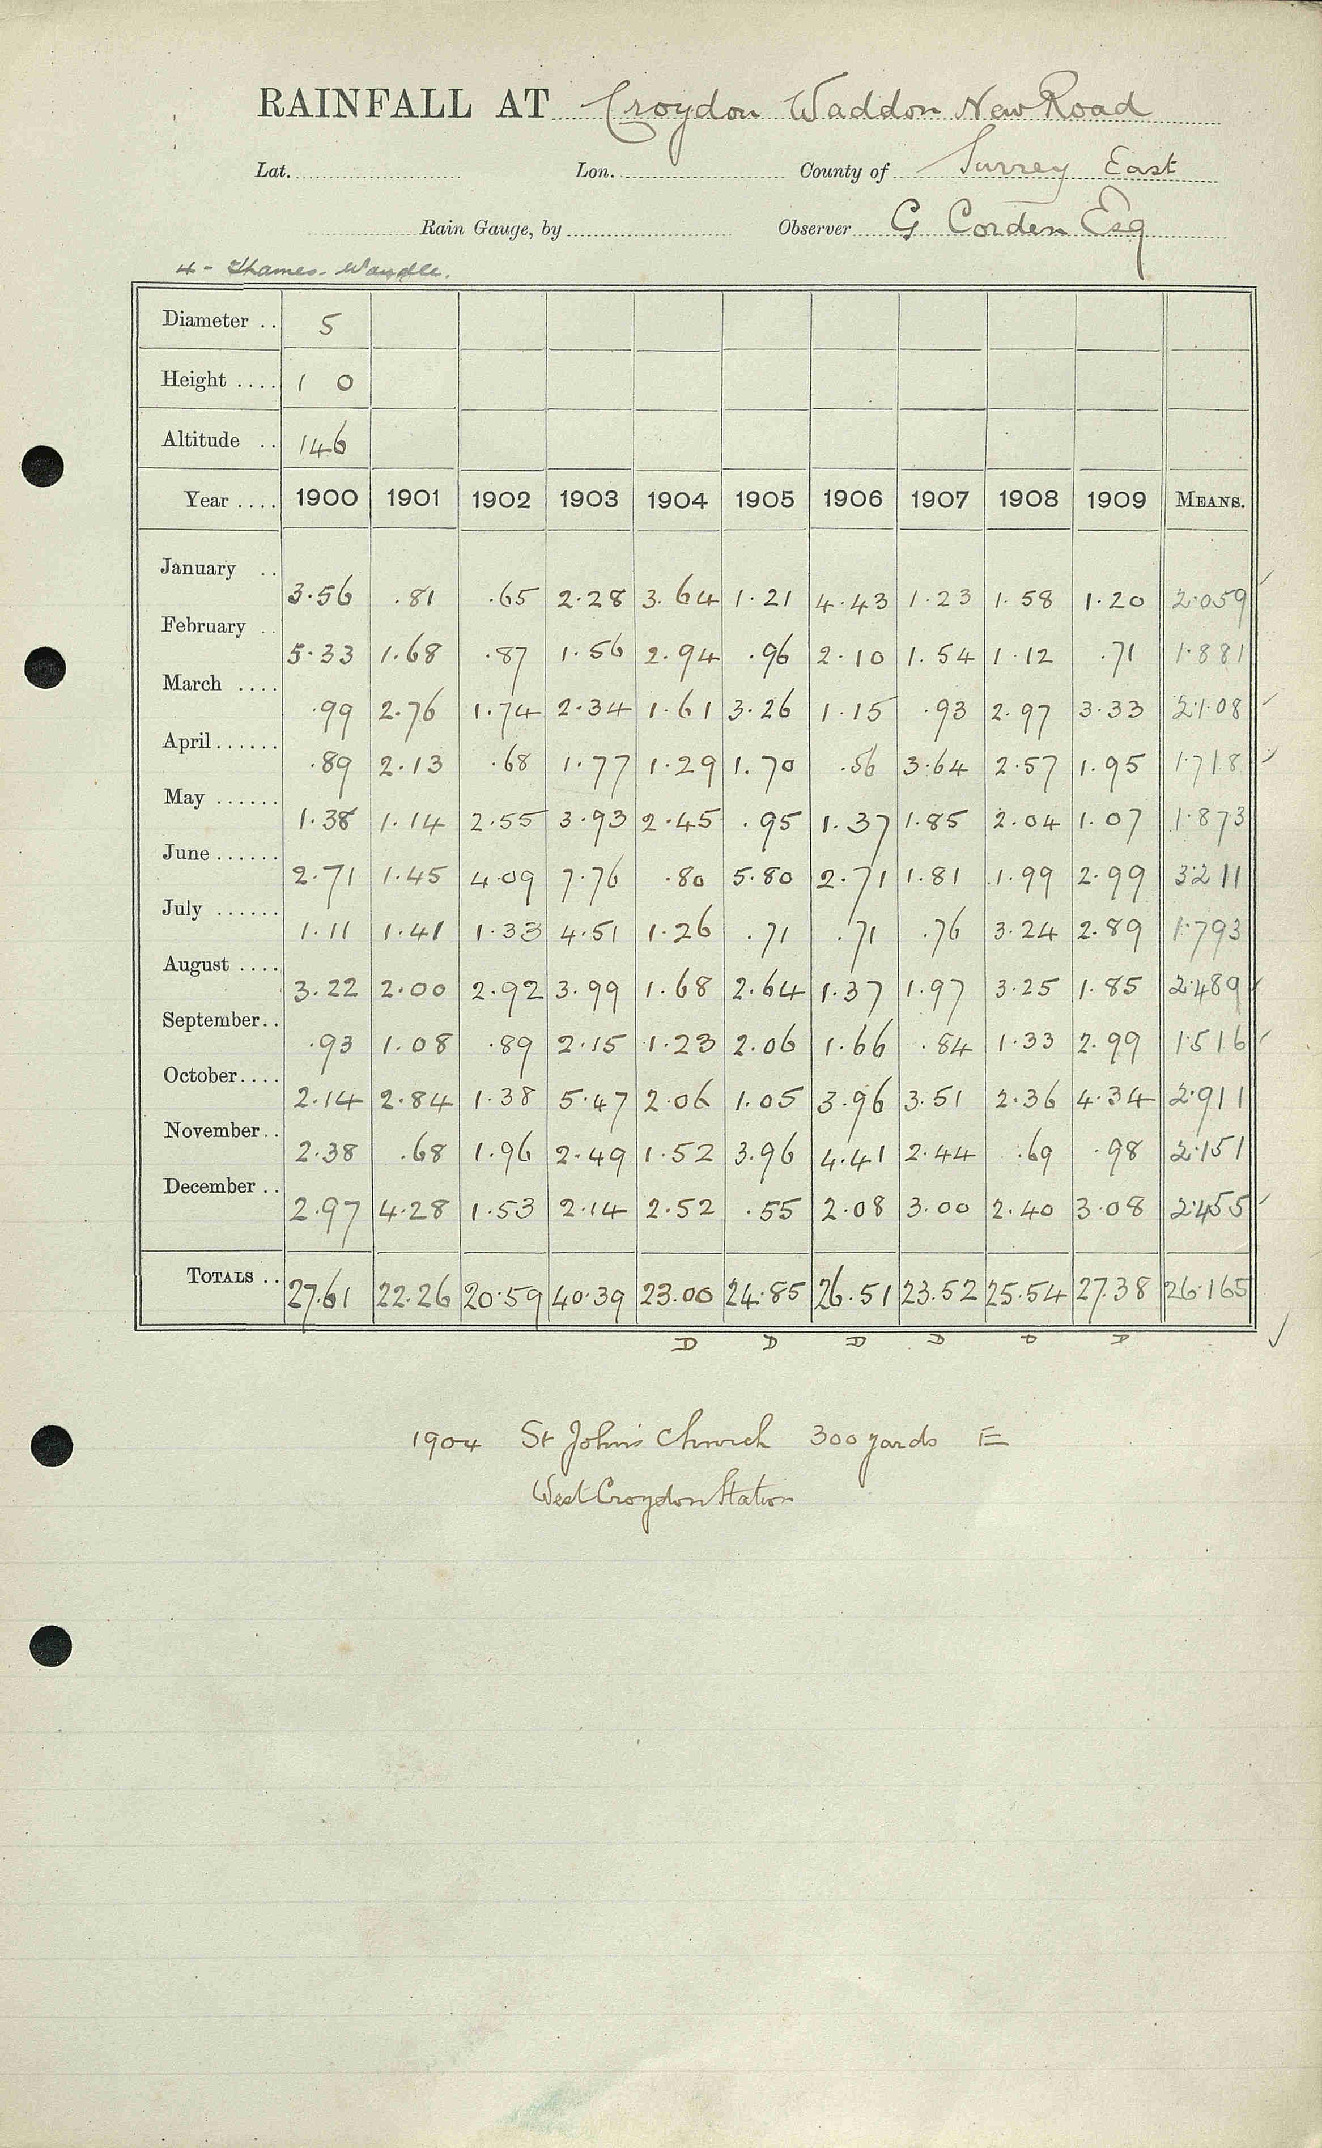 RAINFALL AT Croydon Waddon New Road
Lat. Lon. County of Surrey East
Rain Gauge, by Observer G Corden Esq
4 - Thames - Wandle.
Diameter .. 5
Height .... 1 0
Altitude .. 146
Year .... 1900 1901 1902 1903 1904 1905 1906 1907 1908 1909 MEANS.
January .. 3.56 .81 .65 2.28 3.64 1.21 4.43 1.23 1.58 1.20 2.059
February .. 5.33 1.68 .87 1.56 2.94 .96 2.10 1.54 1.12 .71 1.881
March .... .99 2.76 1.74 2.34 1.61 3.26 1.15 .93 2.97 3.33 2.108
April ...... .89 2.13 .68 1.77 1.29 1.70 .56 3.64 2.57 1.95 1.718
May ...... 1.38 1.14 2.55 3.93 2.45 .95 1.37 1.85 2.04 1.07 1.873
June ...... 2.71 1.45 4.09 7.76 .80 5.80 2.71 1.81 1.99 2.99 3.211
July ...... 1.11 1.41 1.33 4.51 1.26 .71 .71 .76 3.24 2.89 1.793
August .... 3.22 2.00 2.92 3.99 1.68 2.64 1.37 1.97 3.25 1.85 2.489
September .. .93 1.08 .89 2.15 1.23 2.06 1.66 .84 1.33 2.99 1.516
October .... 2.14 2.84 1.38 5.47 2.06 1.05 3.96 3.51 2.36 4.34 2.911
November .. 2.38 .68 1.96 2.49 1.52 3.96 4.41 2.44 .69 .98 2.151
December .. 2.97 4.28 1.53 2.14 2.52 .55 2.08 3.00 2.40 3.08 2.455
TOTALS .. 27.61 22.26 20.59 40.39 23.00 24.85 26.51 23.52 25.54 27.38 26.165
D D D D D D
1904 St John's Church 300 yards E
West Croydon Station